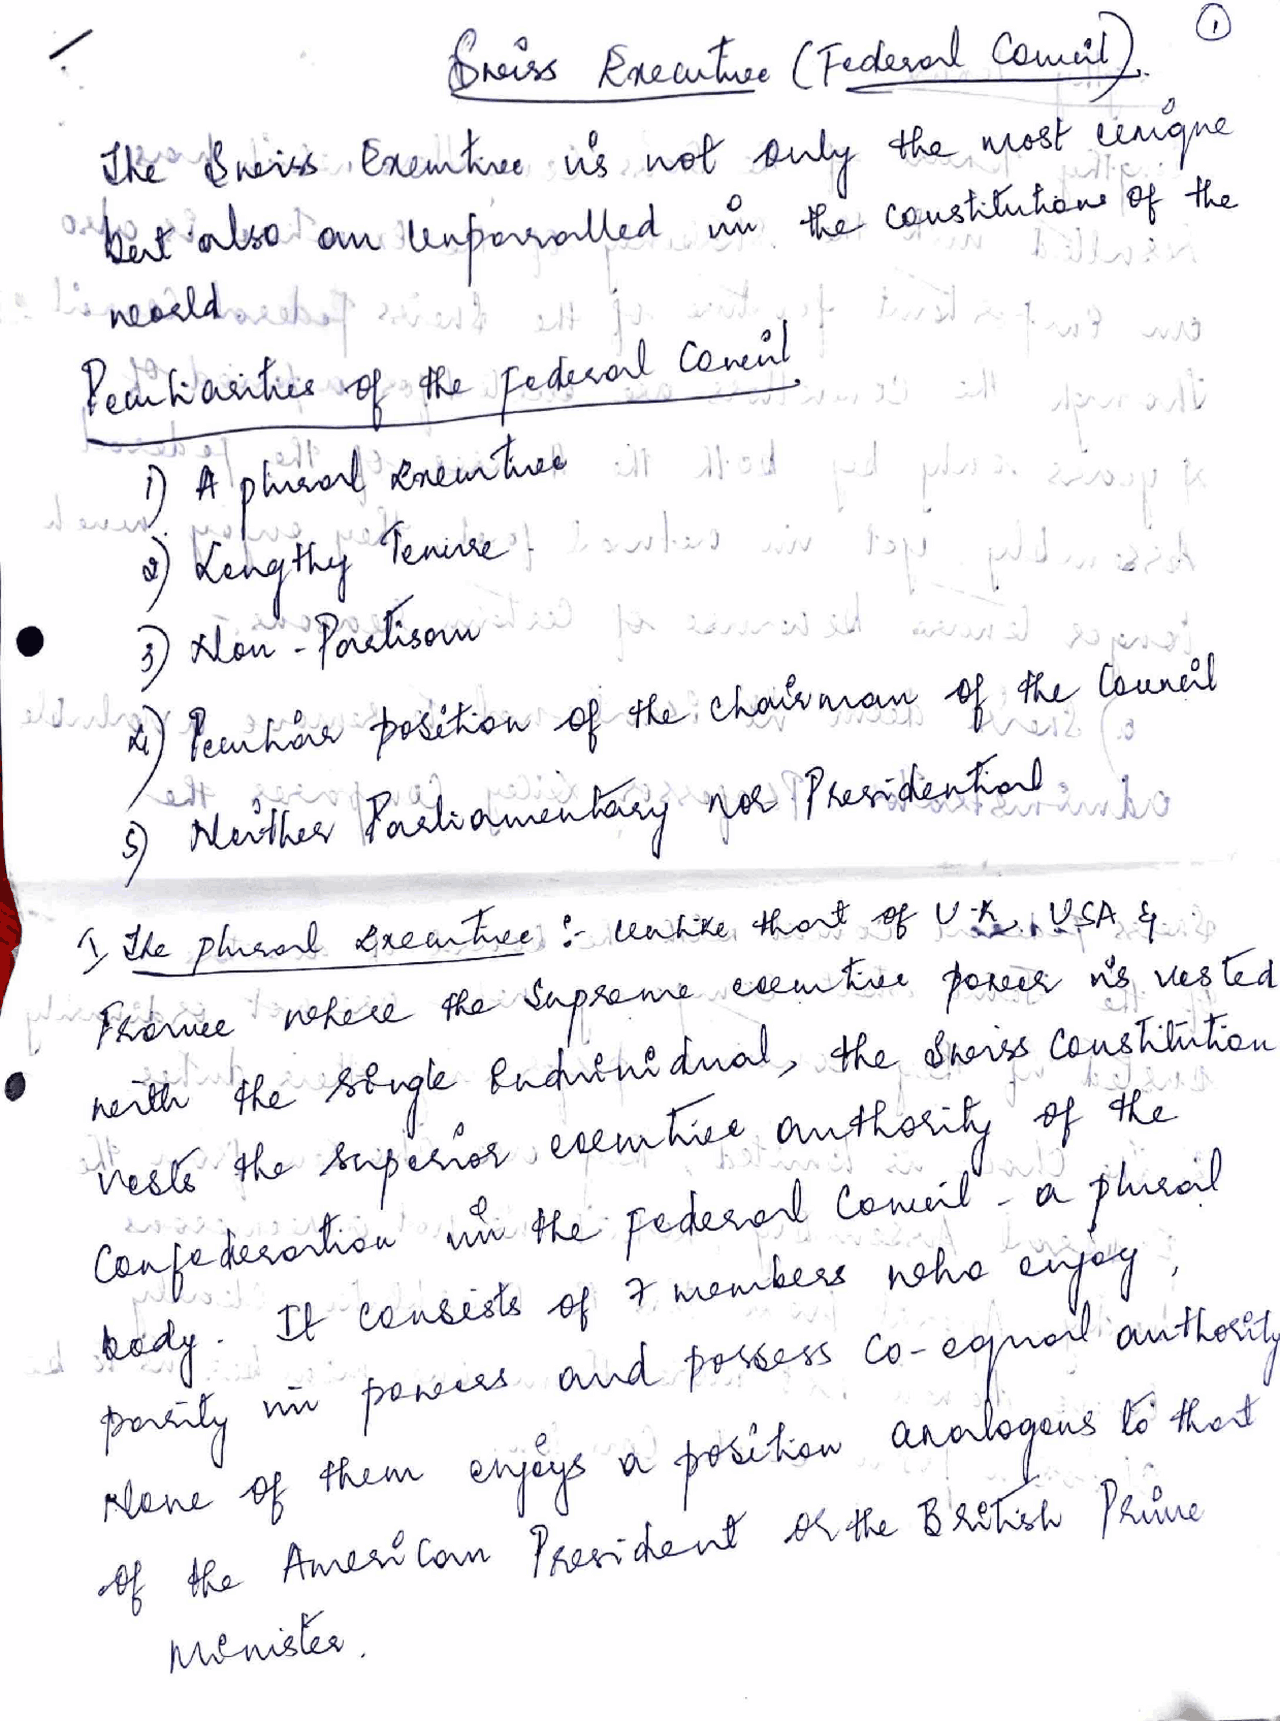 1
Swiss Executive (Federal Council).
The Swiss Executive is not only the most unique
but also an unparralled in the constitutions of the
world
Peculiarities of the Federal Council
1) A plural executive
2) Lengthy Tenure
3) Non - Partisan
4) Peculiar position of the chairman of the Council
5) Neither Parliamentary nor Presidential
I, The plural executive :- unlike that of U.K, USA &
France where the supreme executive power is vested
with the single individual, the Swiss Constitution
vests the superior executive authority of the
Confederation in the Federal Council - a plural
body. It consists of 7 members who enjoy,
parity in powers and possess co-equal authority
None of them enjoys a position analogous to that
of the American President or the British Prime
Minister.